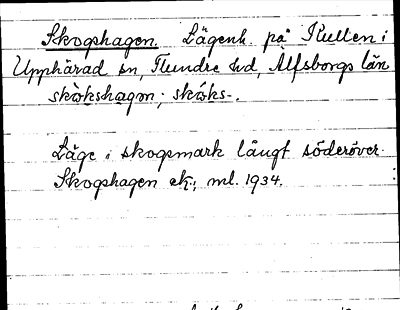 Skogshagen. Lägenh. på Kullen i
Upphärad sn, Flundre hd, Älfsborgs län
skòkshagən; skóks-.
Läge i skogsmark långt söderöver.
Skogshagen ek.; ml. 1934.